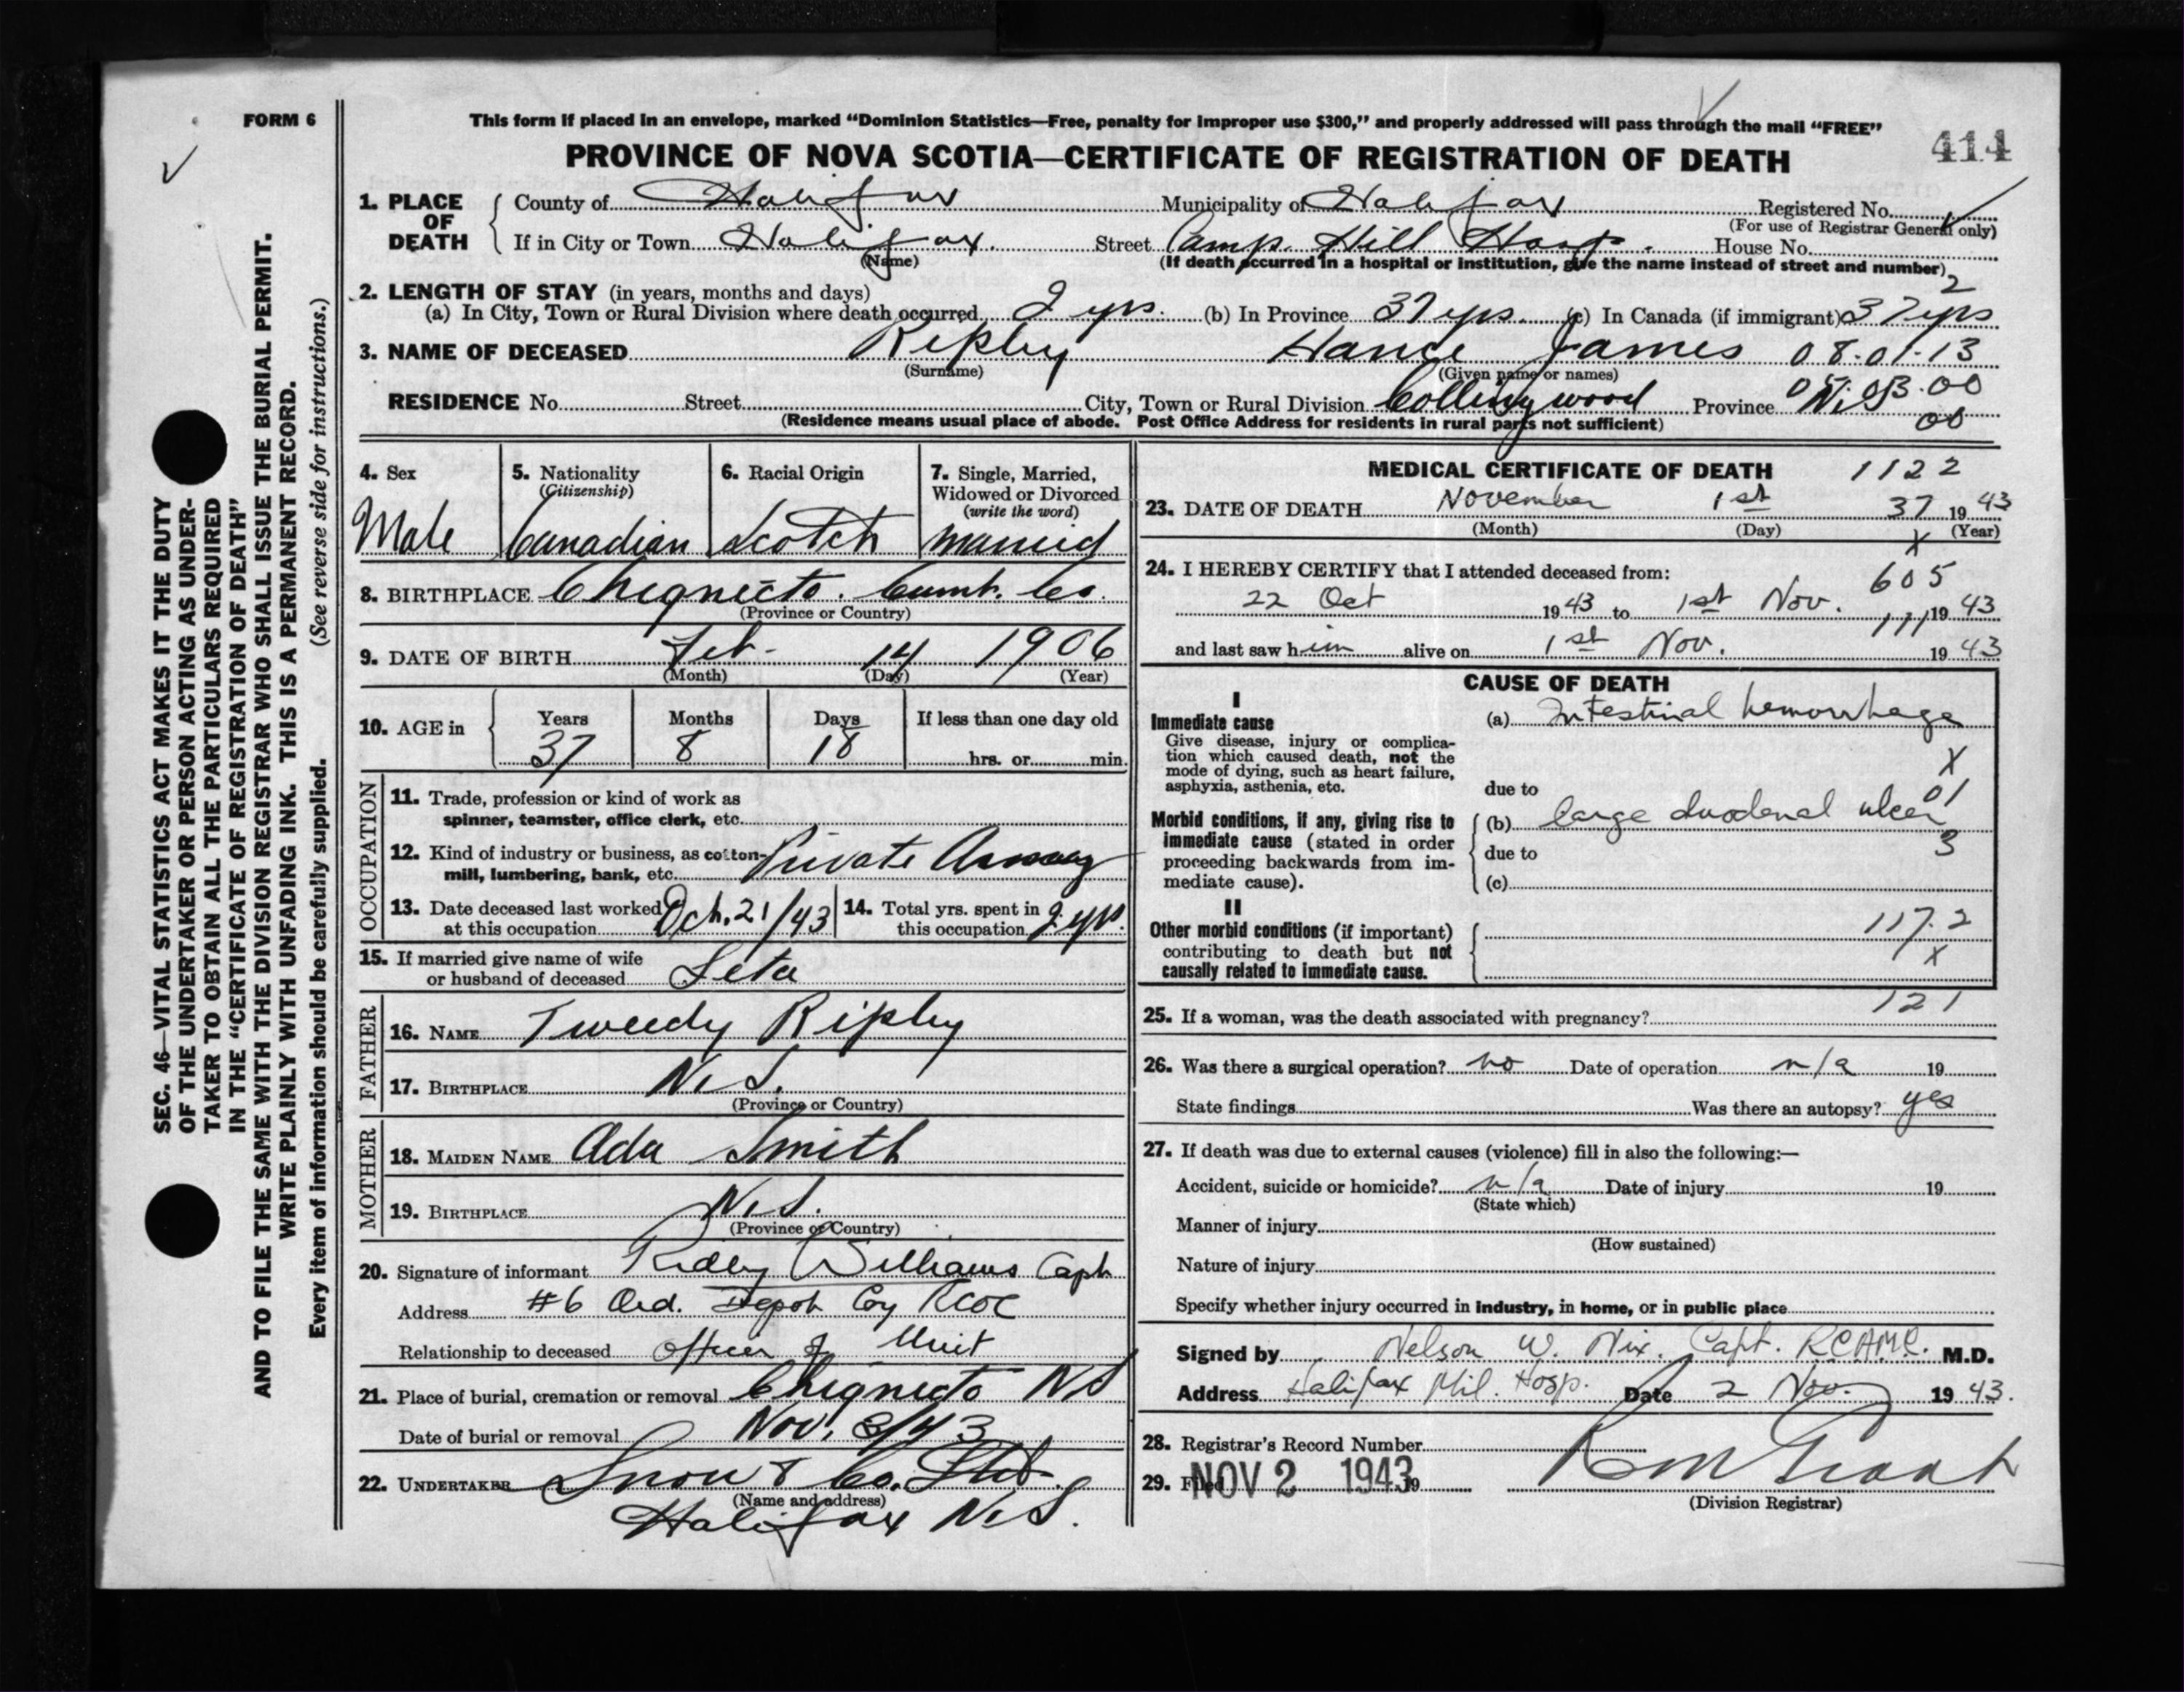 FORM 6
This form if placed in an envelope, marked “Dominion Statistics—Free, penalty for improper use $300,” and properly addressed will pass through the mail “FREE”
PROVINCE OF NOVA SCOTIA—CERTIFICATE OF REGISTRATION OF DEATH
414
1. PLACE OF DEATH
County of Halifax Municipality of Halifax Registered No.
(For use of Registrar General only)
If in City or Town Halifax. Street Camp Hill Hosp. House No.
(Name) (If death occurred in a hospital or institution, give the name instead of street and number)
2
2. LENGTH OF STAY (in years, months and days)
(a) In City, Town or Rural Division where death occurred 2 yrs. (b) In Province 37 yrs. (c) In Canada (if immigrant) 37 yrs
3. NAME OF DECEASED Ripley Hance James 08.01.13
(Surname) (Given name or names)
05.03.00
RESIDENCE No. Street City, Town or Rural Division Collingwood Province N.S.
00
(Residence means usual place of abode. Post Office Address for residents in rural parts not sufficient)
4. Sex
Male
5. Nationality
(Citizenship)
Canadian
6. Racial Origin
Scotch
7. Single, Married,
Widowed or Divorced
(write the word)
Married
8. BIRTHPLACE Chignecto. Cumb. Co.
(Province or Country)
9. DATE OF BIRTH Feb. 14 1906
(Month) (Day) (Year)
10. AGE in
Years Months Days If less than one day old
37 8 18 hrs. or min.
OCCUPATION
11. Trade, profession or kind of work as
spinner, teamster, office clerk, etc.
12. Kind of industry or business, as cotton-
mill, lumbering, bank, etc. Private Army
13. Date deceased last worked
at this occupation Oct. 21/43
14. Total yrs. spent in
this occupation 2 yrs.
15. If married give name of wife
or husband of deceased Leta
FATHER
16. NAME Tweedy Ripley
17. BIRTHPLACE N.S.
(Province or Country)
MOTHER
18. MAIDEN NAME Ada Smith
19. BIRTHPLACE N.S.
(Province or Country)
20. Signature of informant Ridley Williams Capt
Address #6 Ord. Depot Coy RCOC
Relationship to deceased Officer of Unit
21. Place of burial, cremation or removal Chignecto NS
Date of burial or removal Nov. 3/43
22. UNDERTAKER Snow & Co. Ltd.
(Name and address)
Halifax N.S.
MEDICAL CERTIFICATE OF DEATH 1122
23. DATE OF DEATH November 1st 37 1943
(Month) (Day) (Year)
X
24. I HEREBY CERTIFY that I attended deceased from:
605
22 Oct 1943 to 1st Nov. 1943
111
and last saw him alive on 1st Nov. 1943
CAUSE OF DEATH
I
Immediate cause
Give disease, injury or complica-
tion which caused death, not the
mode of dying, such as heart failure,
asphyxia, asthenia, etc.
(a) Intestinal hemorrhage
X
due to
01
Morbid conditions, if any, giving rise to
immediate cause (stated in order
proceeding backwards from im-
mediate cause).
(b) large duodenal ulcer
3
due to
(c)
II
Other morbid conditions (if important)
contributing to death but not
causally related to immediate cause.
117.2
X
121
25. If a woman, was the death associated with pregnancy?
26. Was there a surgical operation? no Date of operation n/a 19
State findings Was there an autopsy? yes
27. If death was due to external causes (violence) fill in also the following:—
Accident, suicide or homicide? n/a Date of injury 19
(State which)
Manner of injury
(How sustained)
Nature of injury
Specify whether injury occurred in industry, in home, or in public place
Signed by Nelson W. Nix. Capt. RCAMC. M.D.
Address Halifax Mil. Hosp. Date 2 Nov. 1943.
28. Registrar's Record Number
29. Filed NOV 2 1943 19
(Division Registrar)
SEC. 46—VITAL STATISTICS ACT MAKES IT THE DUTY
OF THE UNDERTAKER OR PERSON ACTING AS UNDER-
TAKER TO OBTAIN ALL THE PARTICULARS REQUIRED
IN THE “CERTIFICATE OF REGISTRATION OF DEATH”
AND TO FILE THE SAME WITH THE DIVISION REGISTRAR WHO SHALL ISSUE THE BURIAL PERMIT.
WRITE PLAINLY WITH UNFADING INK. THIS IS A PERMANENT RECORD.
Every item of information should be carefully supplied. (See reverse side for instructions.)